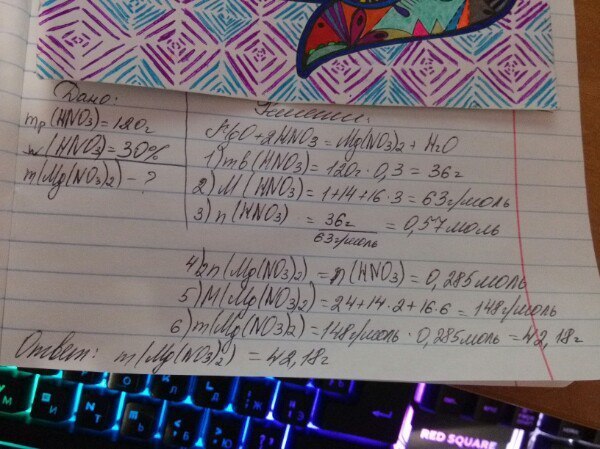 Дано:
mр(HNO3)=120г
w(HNO3)=30%
m(Mg(NO3)2)-?
Решение:
MgO+2HNO3=Mg(NO3)2+H2O
1) mв(HNO3)=120г·0,3=36г
2) M(HNO3)=1+14+16·3=63г/моль
3) n(HNO3) = 36г / 63г/моль = 0,57моль
4) 2n(Mg(NO3)2)=n(HNO3)=0,285моль
5) M(Mg(NO3)2)=24+14·2+16·6=148г/моль
6) m(Mg(NO3)2)=148г/моль·0,285моль=42,18г
Ответ: m(Mg(NO3)2)=42,18г
RED SQUARE